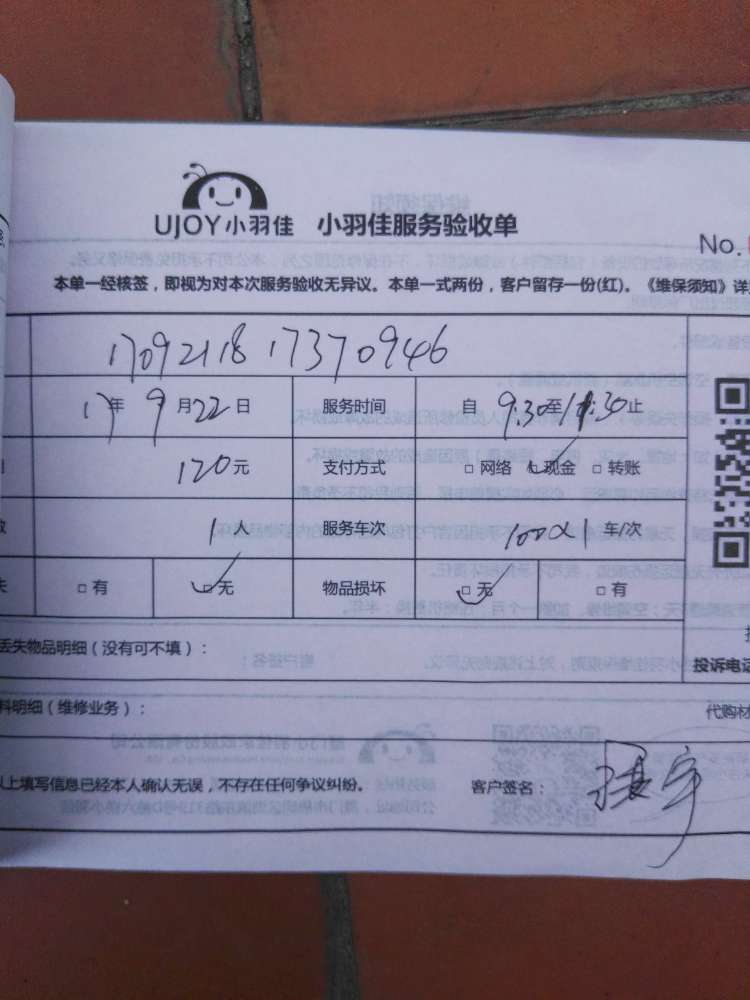 UJOY小羽佳 小羽佳服务验收单
No.
本单一经核签，即视为对本次服务验收无异议。本单一式两份，客户留存一份(红)。《维保须知》详
1709211817370946
17年9月22日 服务时间 自9:30至11:30止
120元 支付方式 □网络 ☑现金 □转账
1 服务车次 车/次
□有 ☑无 物品损坏 ☑无 □有
丢失物品明细（没有可不填）：
投诉电话
料明细（维修业务）： 代购材
以上填写信息已经本人确认无误，不存在任何争议纠纷。 客户签名：